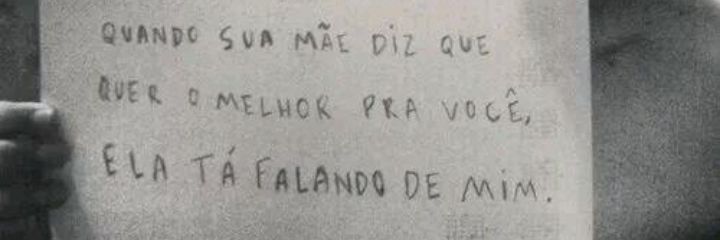 QUANDO SUA MÃE DIZ QUE
QUER O MELHOR PRA VOCÊ,
ELA TÁ FALANDO DE MIM.